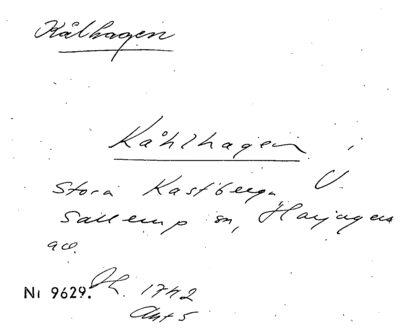 Kålhagen
Kåhlhagen i
Stora Kastberga U.
Sallerup sn, Harjagers
Nr 9629. Ch. 1742
Akt 5